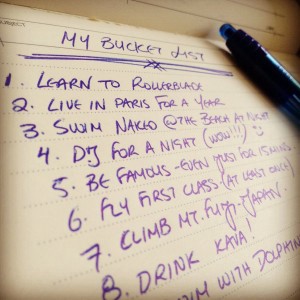 MY BUCKET LIST
1. LEARN TO ROLLERBLADE
2. LIVE IN PARIS FOR A YEAR
3. SWIM NAKED @ THE BEACH AT NIGHT
4. DJ FOR A NIGHT (WOW!!!) ☺
5. BE FAMOUS - EVEN JUST FOR 15 MINS
6. FLY FIRST CLASS (AT LEAST ONCE)
7. CLIMB MT. FUJI - JAPAN.
8. DRINK KAVA!
SWIM WITH DOLPHIN